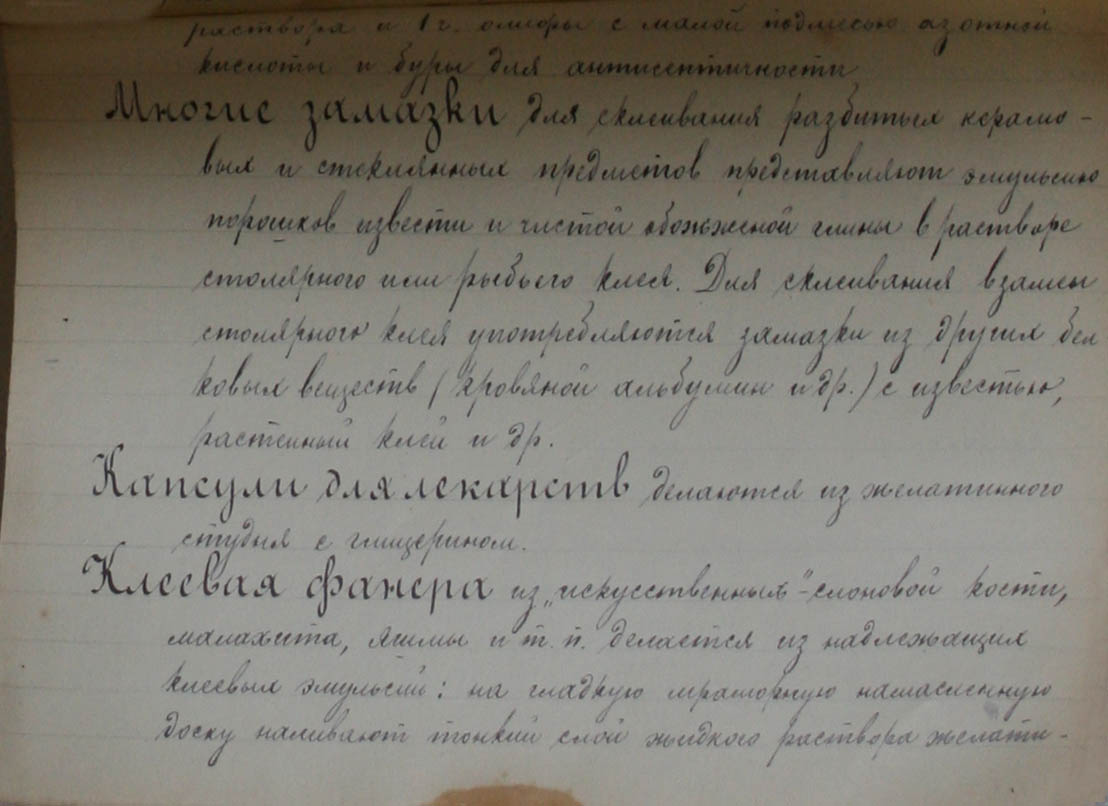 раствора и 1 г. олифы с малой подмесью азотной
кислоты и буры для антисептичности
Многие замазки для склеивания разбитых керамо-
вых и стеклянных предметов представляют эмульсию
порошков извести и чистой обожженой глины в растворе
столярного или рыбьего клея. Для склеивания взамен
столярного клея употребляются замазки из других бел
ковых веществ (кровяной альбумин и др.) с известью,
растенный клей и др.
Капсули для лекарств делаются из желатинного
студня с глицерином.
Клеевая фанера из „искусственных"-слоновой кости,
малахита, яшмы и т. п. делается из надлежащих
клеевых эмульсий: на гладкую мраморную намасленную
доску наливают тонкий слой жидкого раствора желати-